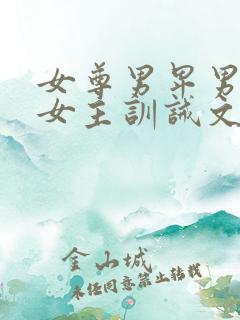 女尊男卑男
女主訓誡文
金山城
未经同意禁止转载